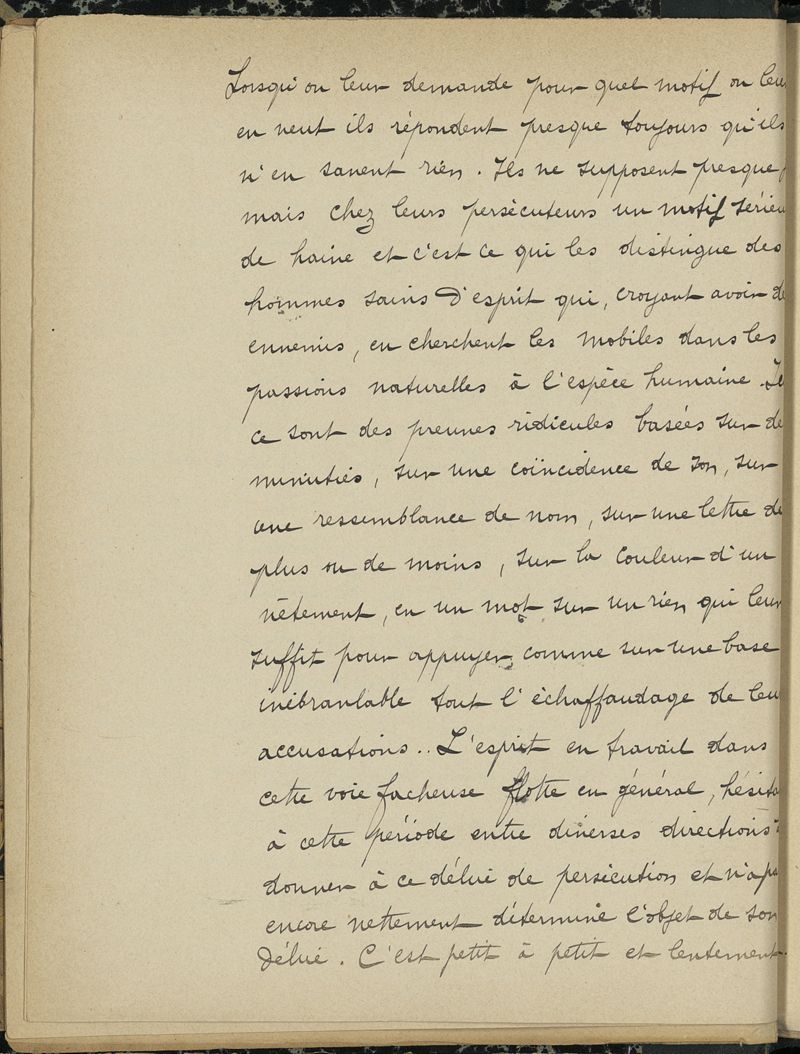 Lorsqu'on leur demande pour quel motif on leur
en veut ils répondent presque toujours qu'ils
n'en savent rien. Ils ne supposent presque
mais chez leurs persécuteurs un motif sérieu
de haine et c'est ce qui les distingue des
hommes sains d'esprit qui, croyant avoir de
ennemis, en cherchent les mobiles dans les
passions naturelles à l'espèce humaine. Ici
ce sont des preuves ridicules basées sur de
minuties, sur une coïncidence de son, sur
une ressemblance de nom, sur une lettre de
plus ou de moins, sur la couleur d'un
vêtement, en un mot sur un rien qui leur
suffit pour appuyer comme sur une base
inébranlable tout l'échaffaudage de leu
accusations.. L'esprit en travail dans
cette voie facheuse flotte en général, hésite
à cette période entre diverses directions à
donner à ce délire de persécution et n'a pa
encore nettement déterminé l'objet de son
délire. C'est petit à petit et lentement